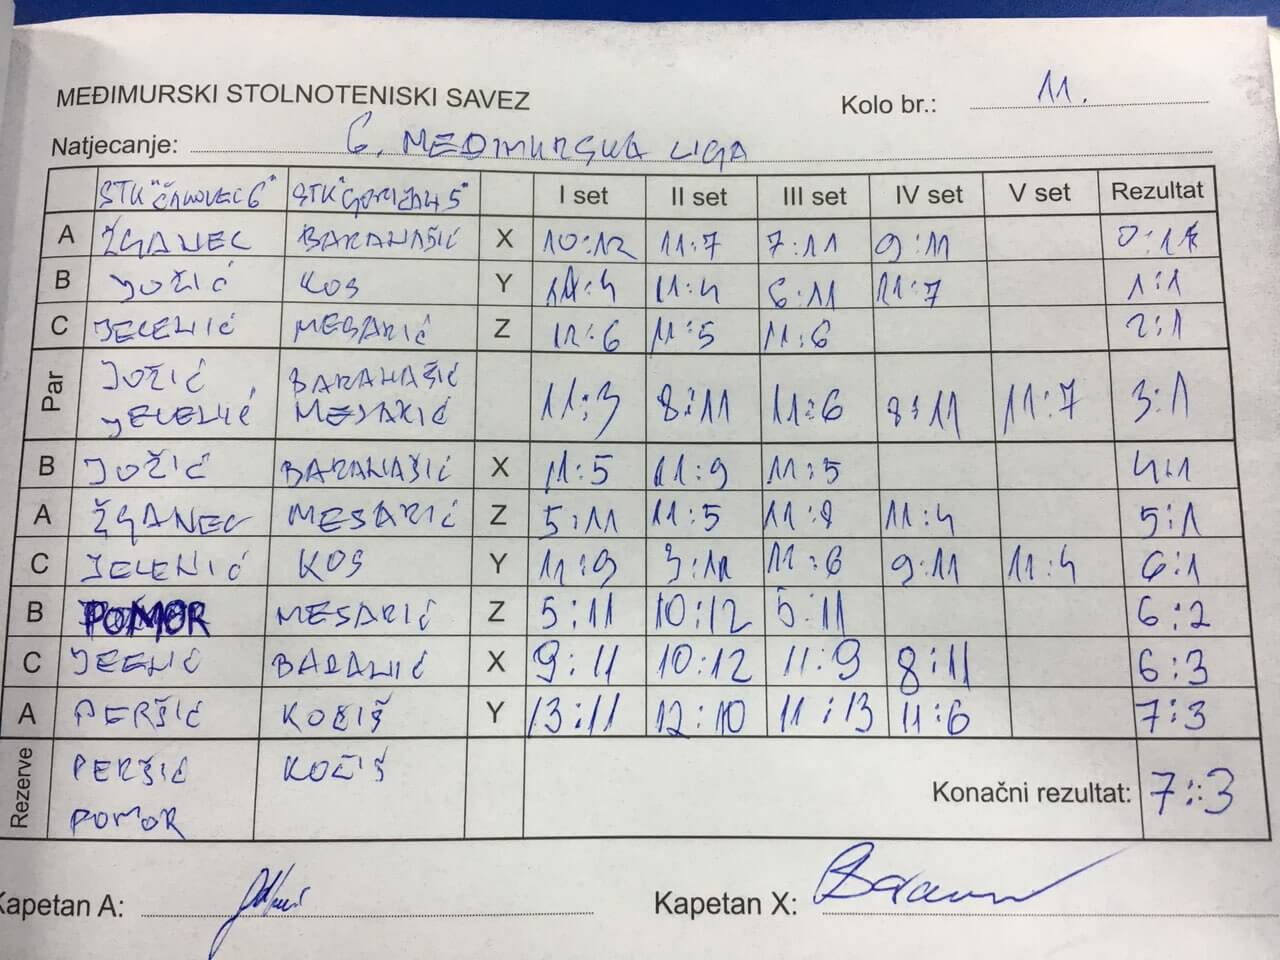 MEĐIMURSKI STOLNOTENISKI SAVEZ
Kolo br.: 11.
Natjecanje: 6. MEĐIMURSKA LIGA
STK "ČAKOVEC 6" STK "GORIČAN 5" I set II set III set IV set V set Rezultat
A ŽGANEC BARANAŠIĆ X 10:12 11:7 7:11 9:11 0:1
B JOŽIĆ KOS Y 11:4 11:4 6:11 11:7 1:1
C JELENIĆ MESARIĆ Z 11:6 11:5 11:6 2:1
Par JOŽIĆ BARANAŠIĆ
JELENIĆ MESARIĆ 11:3 8:11 11:6 8:11 11:7 3:1
B JOŽIĆ BARANAŠIĆ X 11:5 11:9 11:5 4:1
A ŽGANEC MESARIĆ Z 5:11 11:5 11:8 11:4 5:1
C JELENIĆ KOS Y 11:9 3:11 11:6 9:11 11:4 6:1
B POMOR MESARIĆ Z 5:11 10:12 5:11 6:2
C JEENIĆ BARANIĆ X 9:11 10:12 11:9 8:11 6:3
A PERŠIĆ KOČIŠ Y 13:11 12:10 11:13 11:6 7:3
Rezerve PERŠIĆ KOČIŠ
POMOR
Konačni rezultat: 7:3
Kapetan A: Kapetan X: